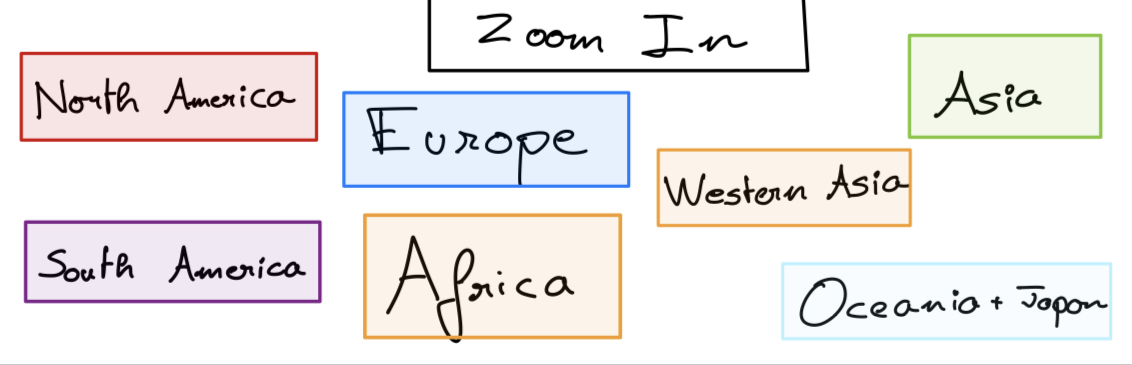 Zoom In
North America
Europe
Asia
Western Asia
South America
Africa
Oceania + Japan